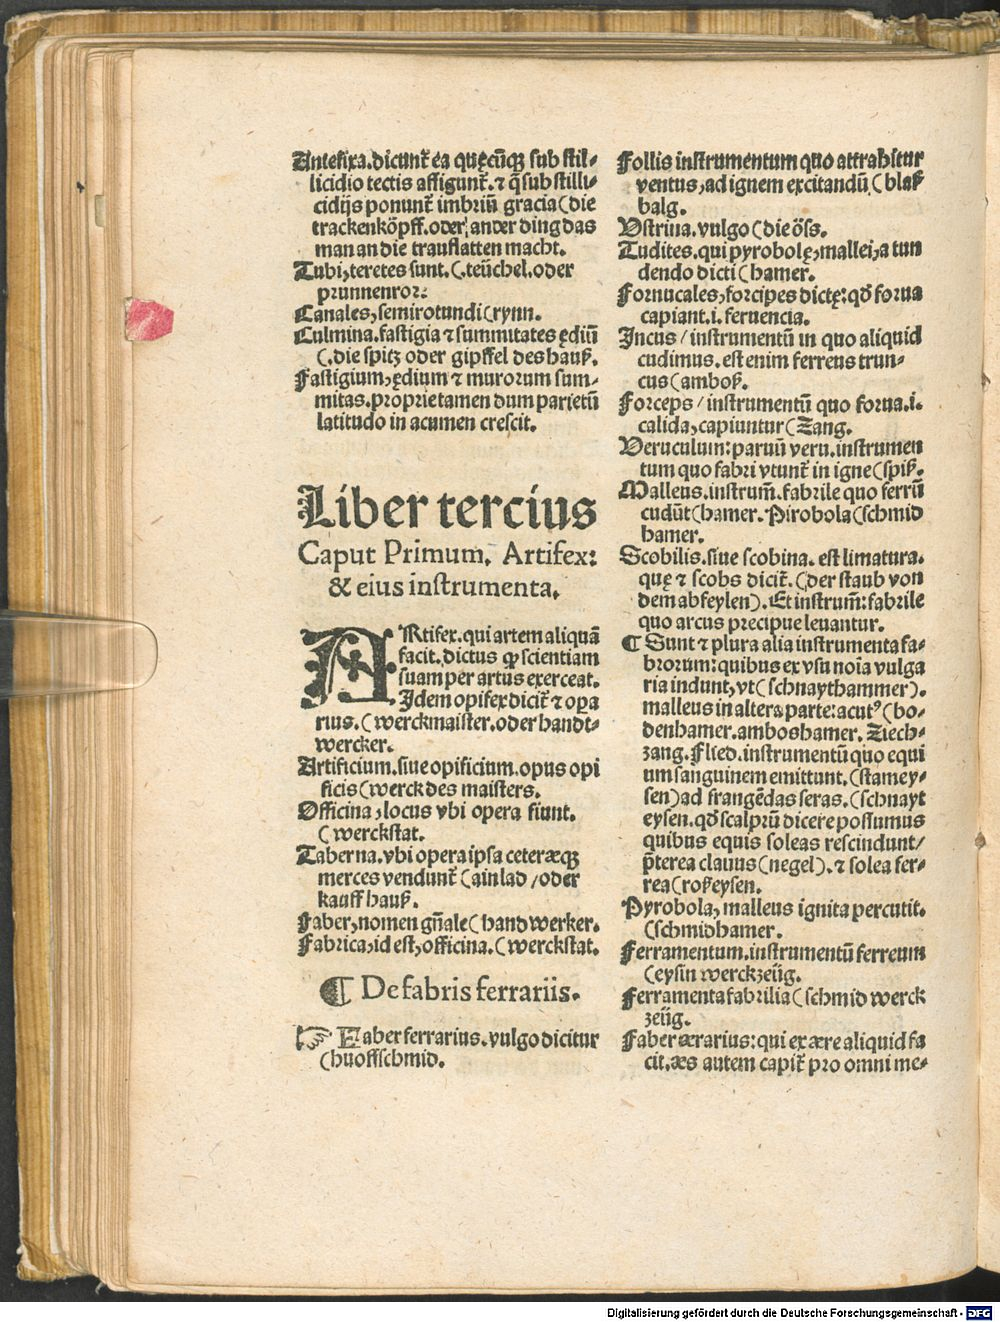 Antefixa.dicunt̄ ea quęcūqꝫ sub stil⸗
licidio tectis affigunt̄.⁊ q̄ sub stilli⸗
cidijs ponunt̄ imbriū gracia(die
trackenköpff.oder ander ding das
man an die trauflatten macht.
Tubi,teretes sunt.(.teüchel.oder
prunnenror:
Canales,semirotundi(rynn.
Culmina.fastigia ⁊ summitates ędiū
(.die spitz oder gipffel des hauß.
Fastigium,ędium ⁊ murorum sum⸗
mitas.proprie tamen dum parietū
latitudo in acumen crescit.
Liber tercius
Caput Primum. Artifex:
& eius instrumenta.
ARtifex.qui artem aliquā
facit.dictus ꝙ scientiam
suam per artus exerceat.
Idem opifex dicit̄ ⁊ opa
rius.(werckmaister.oder handt⸗
wercker.
Artificium.siue opificium.opus opi
ficis(werck des maisters.
Officina,locus vbi opera fiunt.
(werckstat.
Taberna.vbi opera ipsa ceteræqꝫ
merces vendunt̄(ain lad/oder
kauff hauß.
Faber,nomen gn̄ale(handwerker.
Fabrica,id est,officina.(werckstat.
¶ De fabris ferrariis.
☞ Faber ferrarius.vulgo dicitur
(huoffschmid.
Follis instrumentum quo attrahitur
ventus,ad ignem excitandū(blaß
balg.
Vstrina.vulgo(die öss.
Tudites.qui pyrobolę,mallei,a tun
dendo dicti(hamer.
Fornucales,forcipes dictę:qđ forua
capiant.i.feruencia.
Incus/instrumentū in quo aliquid
cudimus.est enim ferreus trun⸗
cus(amboß.
Forceps/instrumentū quo forua.i.
calida,capiuntur(Zang.
Veruculum:paruū veru.instrumen
tum quo fabri vtunt̄ in igne(spiß.
Malleus.instrum̄.fabrile quo ferrū
cudūt(hamer.Pirobola(schmid
hamer.
Scobilis.siue scobina.est limatura.
quę ⁊ scobs dicit̄.(der staub von
dem abfeylen).Et instrum̄:fabrile
quo arcus precipue leuantur.
¶ Sunt ⁊ plura alia instrumenta fa⸗
brorum:quibus ex vsu noīa vulga
ria indunt,vt(schnaythammer).
malleus in altera parte:acutꝰ(bo⸗
denhamer.amboshamer.Ziech⸗
zang.Flied.instrumentū quo equi
um sanguinem emittunt.(stamey⸗
sen)ad frangēdas seras.(schnayt
eysen.qđ scalprū dicere possumus
quibus equis soleas rescindunt/
p̄terea clauus(negel).⁊ solea fer⸗
rea(roßeysen.
Pyrobola,malleus ignita percutit.
(schmidhamer.
Ferramentum.instrumentū ferreum
(eysin werckzeüg.
Ferramenta fabrilia(schmid werck
zeüg.
Faber ærarius:qui ex ære aliquid fa
cit.æs autem capit̄ pro omni me⸗
Digitalisierung gefördert durch die Deutsche Forschungsgemeinschaft - DFG